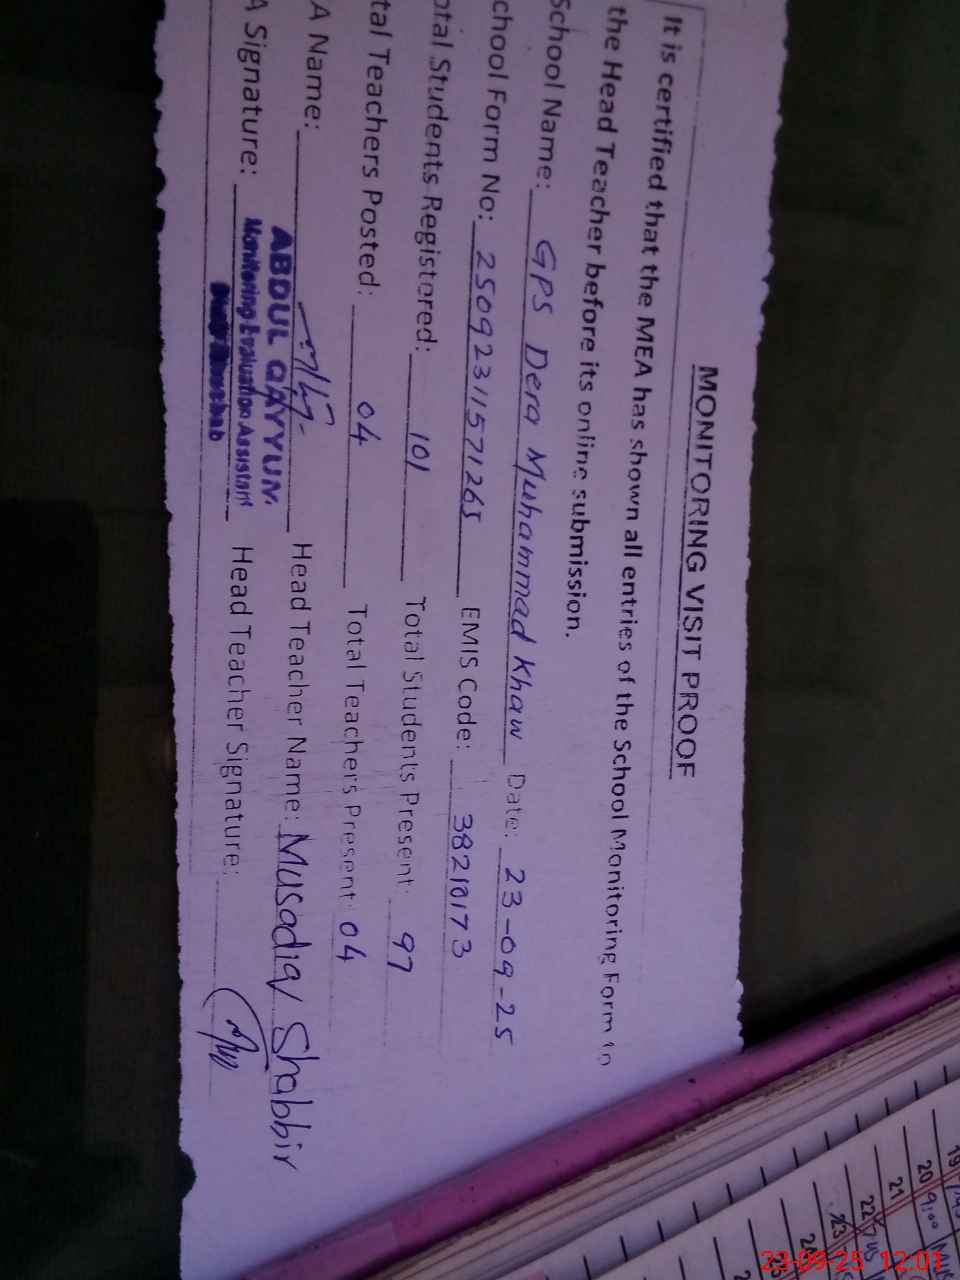 MONITORING VISIT PROOF
It is certified that the MEA has shown all entries of the School Monitoring Form to
the Head Teacher before its online submission.
School Name: GPS Dera Muhammad Khan Date: 23-09-25
chool Form No: 25092311571265 EMIS Code: 38210173
otal Students Registered: 101 Total Students Present: 97
tal Teachers Posted: 04 Total Teachers Present: 04
A Name: Head Teacher Name: Musadiq Shabbir
ABDUL QAYYUM
A Signature: Head Teacher Signature:
Monitoring Evaluation Assistant
19
20 9:00
21
22
23
23-09-25 12:01